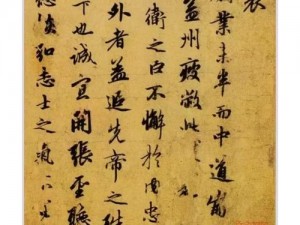 表
創業未半而中道崩
益州疲敝此
衛之臣不懈於內忠
外者蓋追先帝之殊
下也誠宜開張聖聽
德恢弘志士之氣不